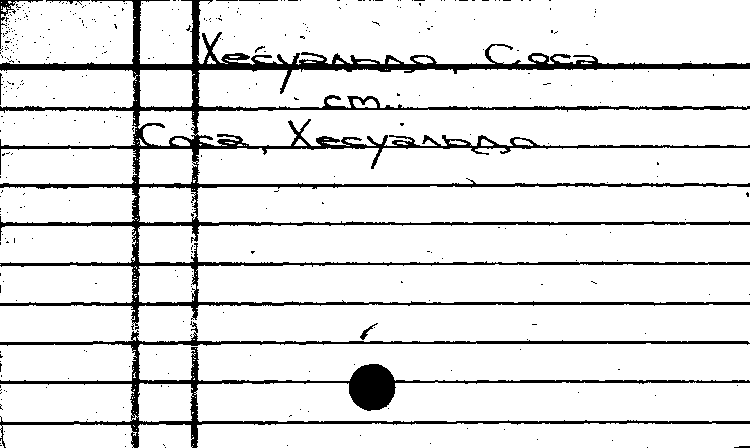 Хесуальдо, Соса
см.:
Соса, Хесуальдо